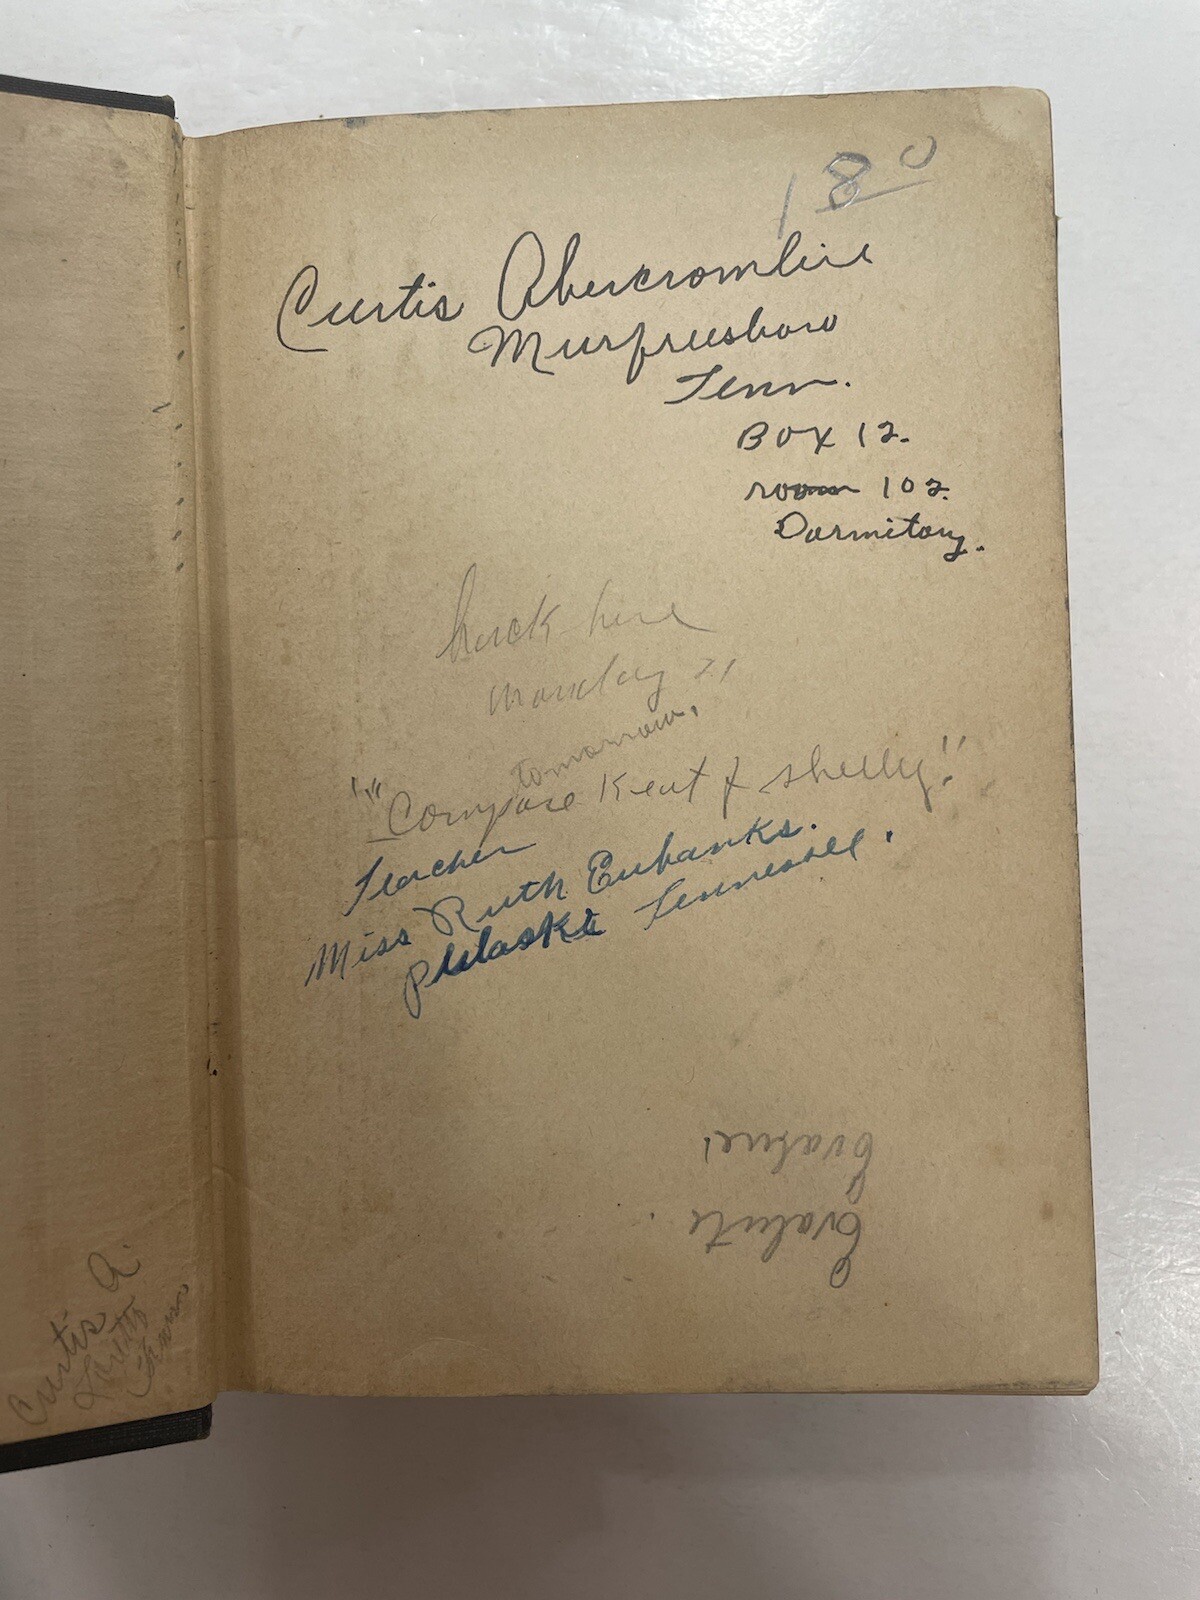 1 80
Curtis Abercrombie
Murfreesboro
Tenn.
BOX 12.
room 102.
Dormitory.
here
Monday 21
tomorrow.
"Compare Keat & Shelly!"
Teacher
Miss Ruth Eubanks.
Pulaski Tennessee.
Evalute.
Curtis A.
Loretto
Tenn